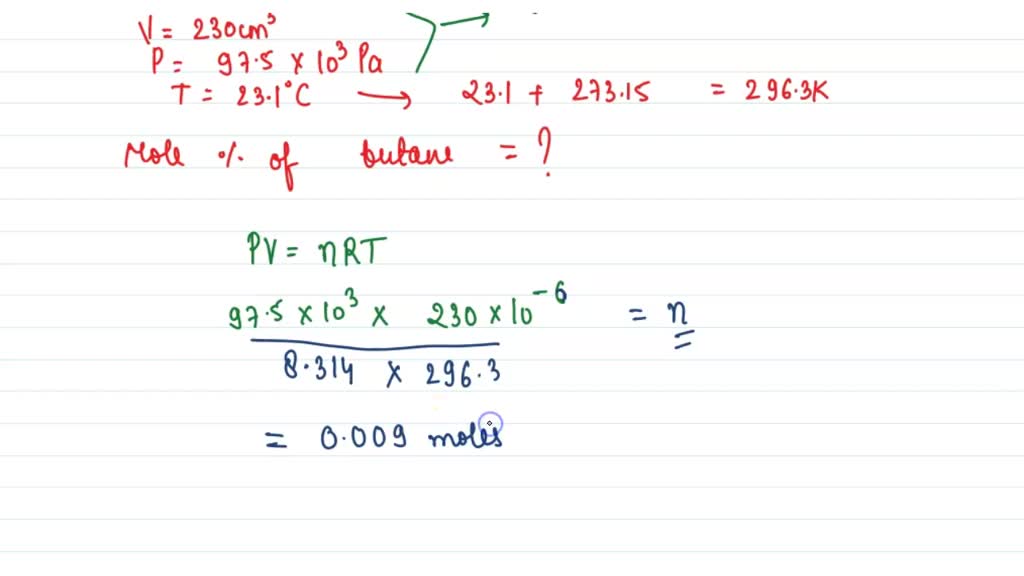 V = 230 cm³
P = 97.5 × 10³ Pa
T = 23.1°C → 23.1 + 273.15 = 296.3K
Mole % of butane = ?
PV = nRT
97.5 × 10³ × 230 × 10⁻⁶ = n
8.314 × 296.3
= 0.009 moles